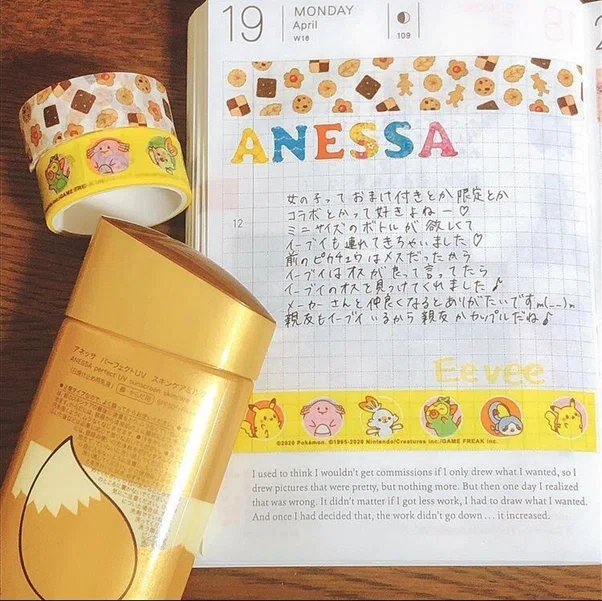 19
MONDAY
April
W16
109
ANESSA
12
女の子って おまけ付きとか 限定とか
コラボとかって 好きよねー♡
ミニサイズのボトルが 欲しくて
イーブイも連れてきちゃいました♡
前のピカチュウはメスだったから
イーブイはオスが良って言ってたら
イーブイのオスを見つけてくれました♪
メーカーさんと仲良くなるとありがたいですm(__)m
親友もイーブイいるから 親友かカップルだね♪
Eevee
©2020 Pokémon. ©1995-2020 Nintendo/Creatures inc./GAME FREAK inc.
I used to think I wouldn't get commissions if I only drew what I wanted, so I
drew pictures that were pretty, but nothing more. But then one day I realized
that was wrong. It didn't matter if I got less work, I had to draw what I wanted.
And once I had decided that, the work didn't go down . . . it increased.
GAME FREAK inc.
アネッサ パーフェクトUV スキンケアミルク
ANESSA perfect UV sunscreen skincare